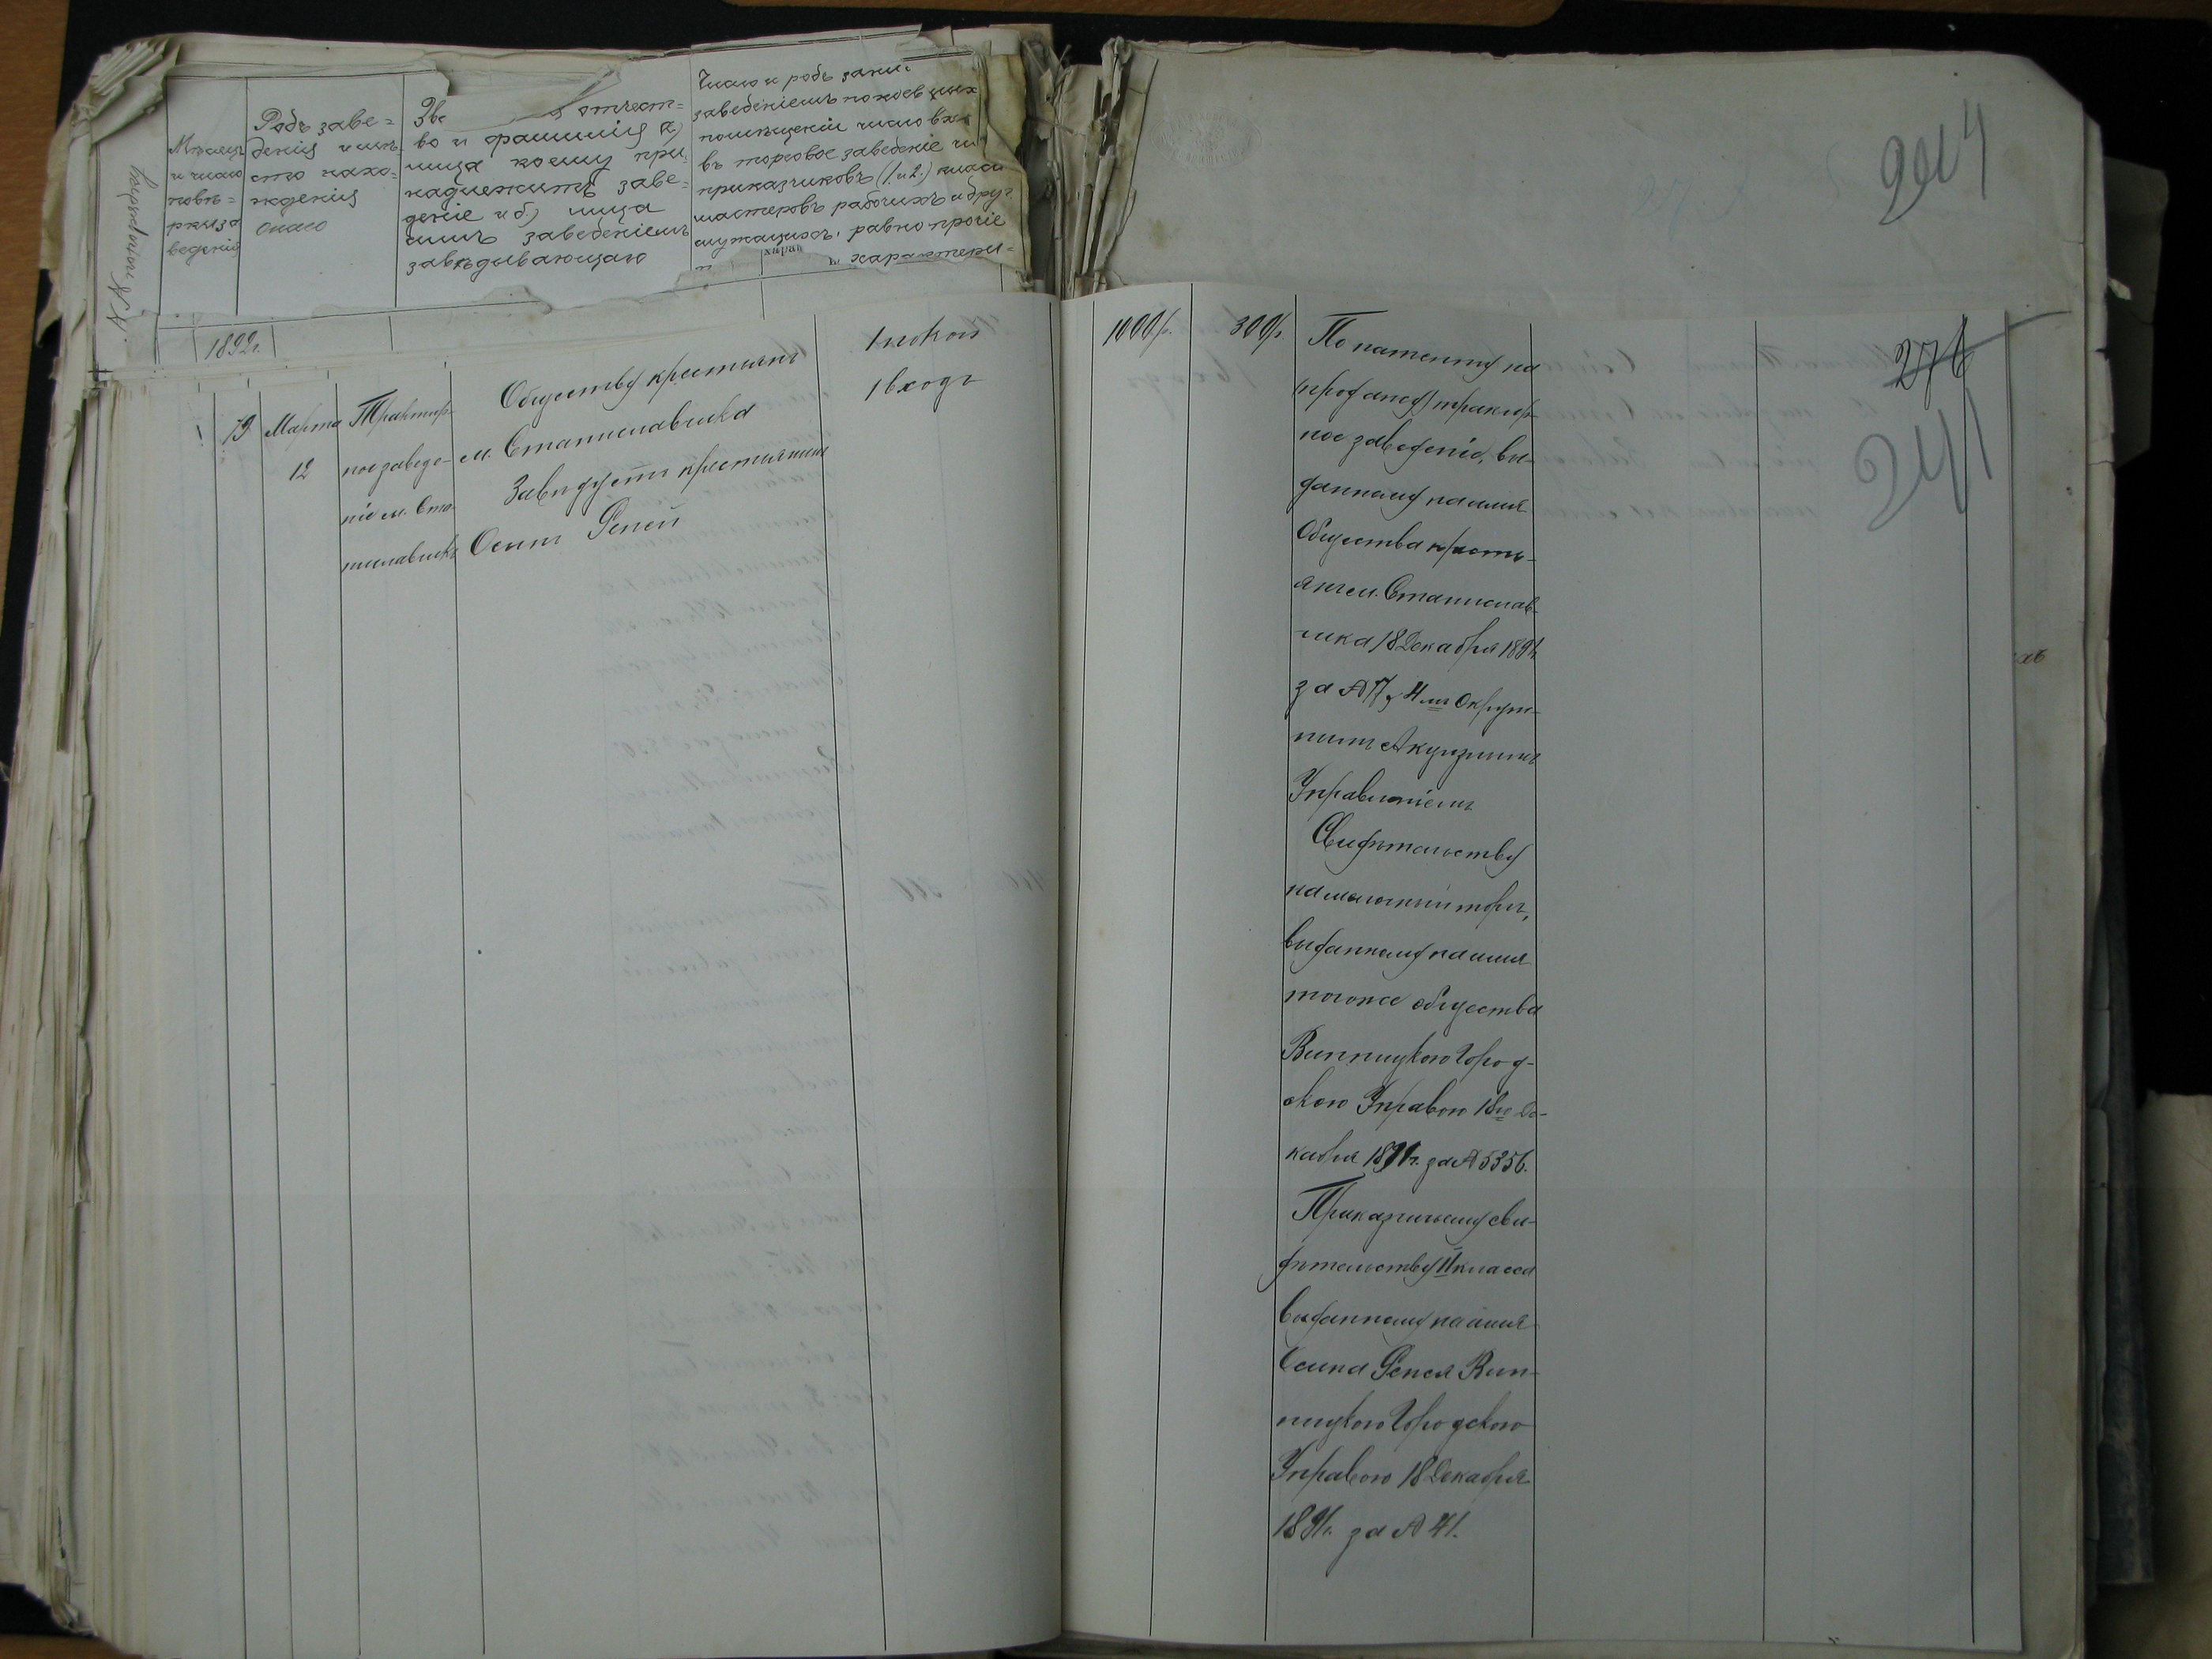 № по порядку
Мѣсяцъ
и число
повѣ=
рки за
веденія
Родъ заве=
денія и мѣ=
сто нахо=
жденія
онаго
Зва отчест=
во и фамилія а)
лица коему при
надлежитъ заве=
деніе и б.) лица
симъ заведеніемъ
завѣдывающаго
Число и родъ зани
заведеніемъ покоевъ
помѣщеніи число вхо
въ торговое заведеніе чи
приказчиковъ (1. и 2.) класс
мастеровъ рабочихъ и друг
служащихъ, равно прочіе
характери=
1892г.
79
Марта
12
Трактир-
ное заведе-
ніе м. Ста-
ниславчикъ
Обществу крестьянъ
м. Станиславчика
Завѣдуетъ крестьянинъ
Осипъ Репей
1 покой
1 входъ
1000 р.
300 р.
По патенту на
трактир-
ное заведеніе, вы-
данному на имя
Общества кресть-
янъ м. Станислав-
чика 18 Декабря 1891г.
за № 17, 4мъ Окруж-
нымъ Акцизнымъ
Управленіемъ
Свидѣтельству
на мелочный торгъ,
выданному на имя
того же общества
Винницкою Город-
скою Управою 18го Де-
кабря 1891г. за № 5356.
Приказчичьему сви-
дѣтельству II класса
выданному на имя
Осипа Репея Вин-
ницкою Городскою
Управою 18 Декабря
1891г. за № 41.
244
276
241